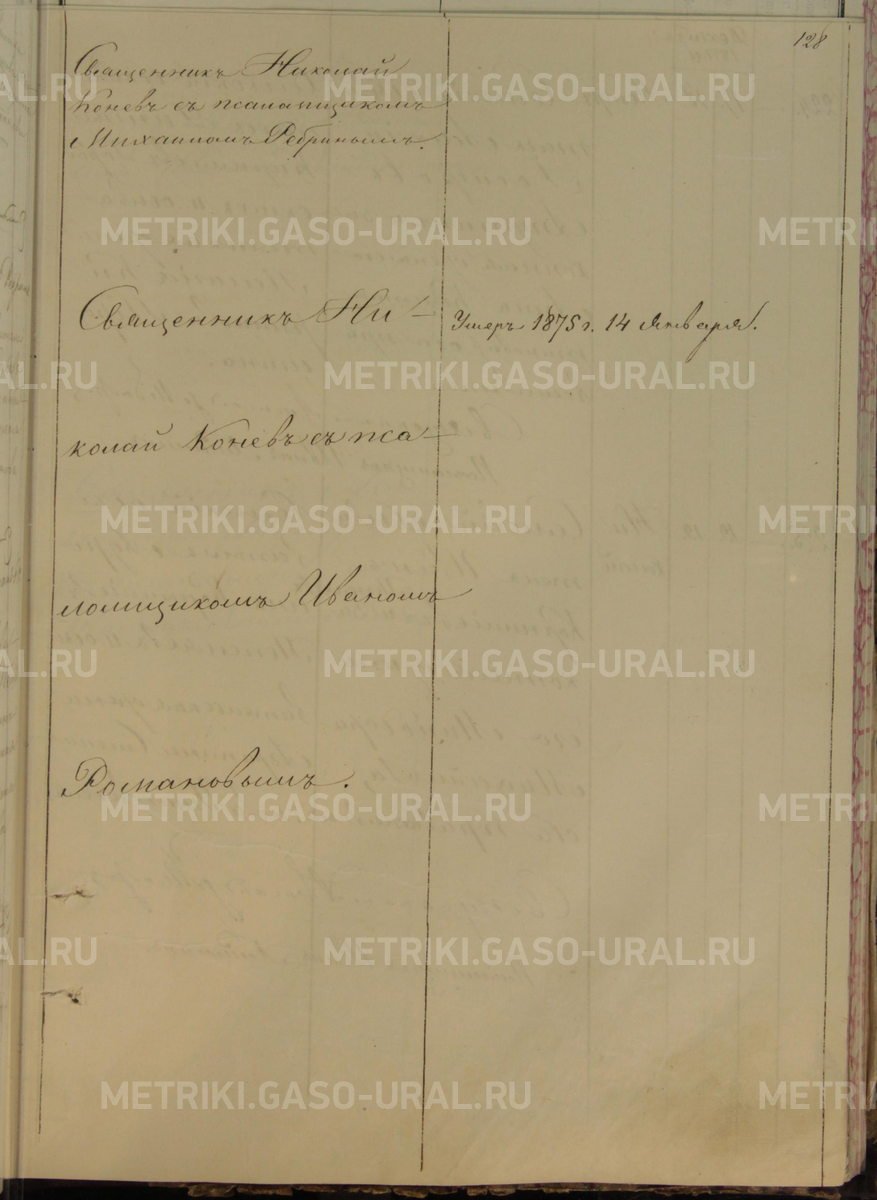 128
Священникъ Николай
Коневъ съ псаломщикомъ
Михаиломъ Ребринымъ.
Священникъ Ни-
Умеръ 1875 г. 14 Января.
колай Коневъ съ пса-
ломщикомъ Иваномъ
Романовымъ.
METRIKI.GASO-URAL.RU